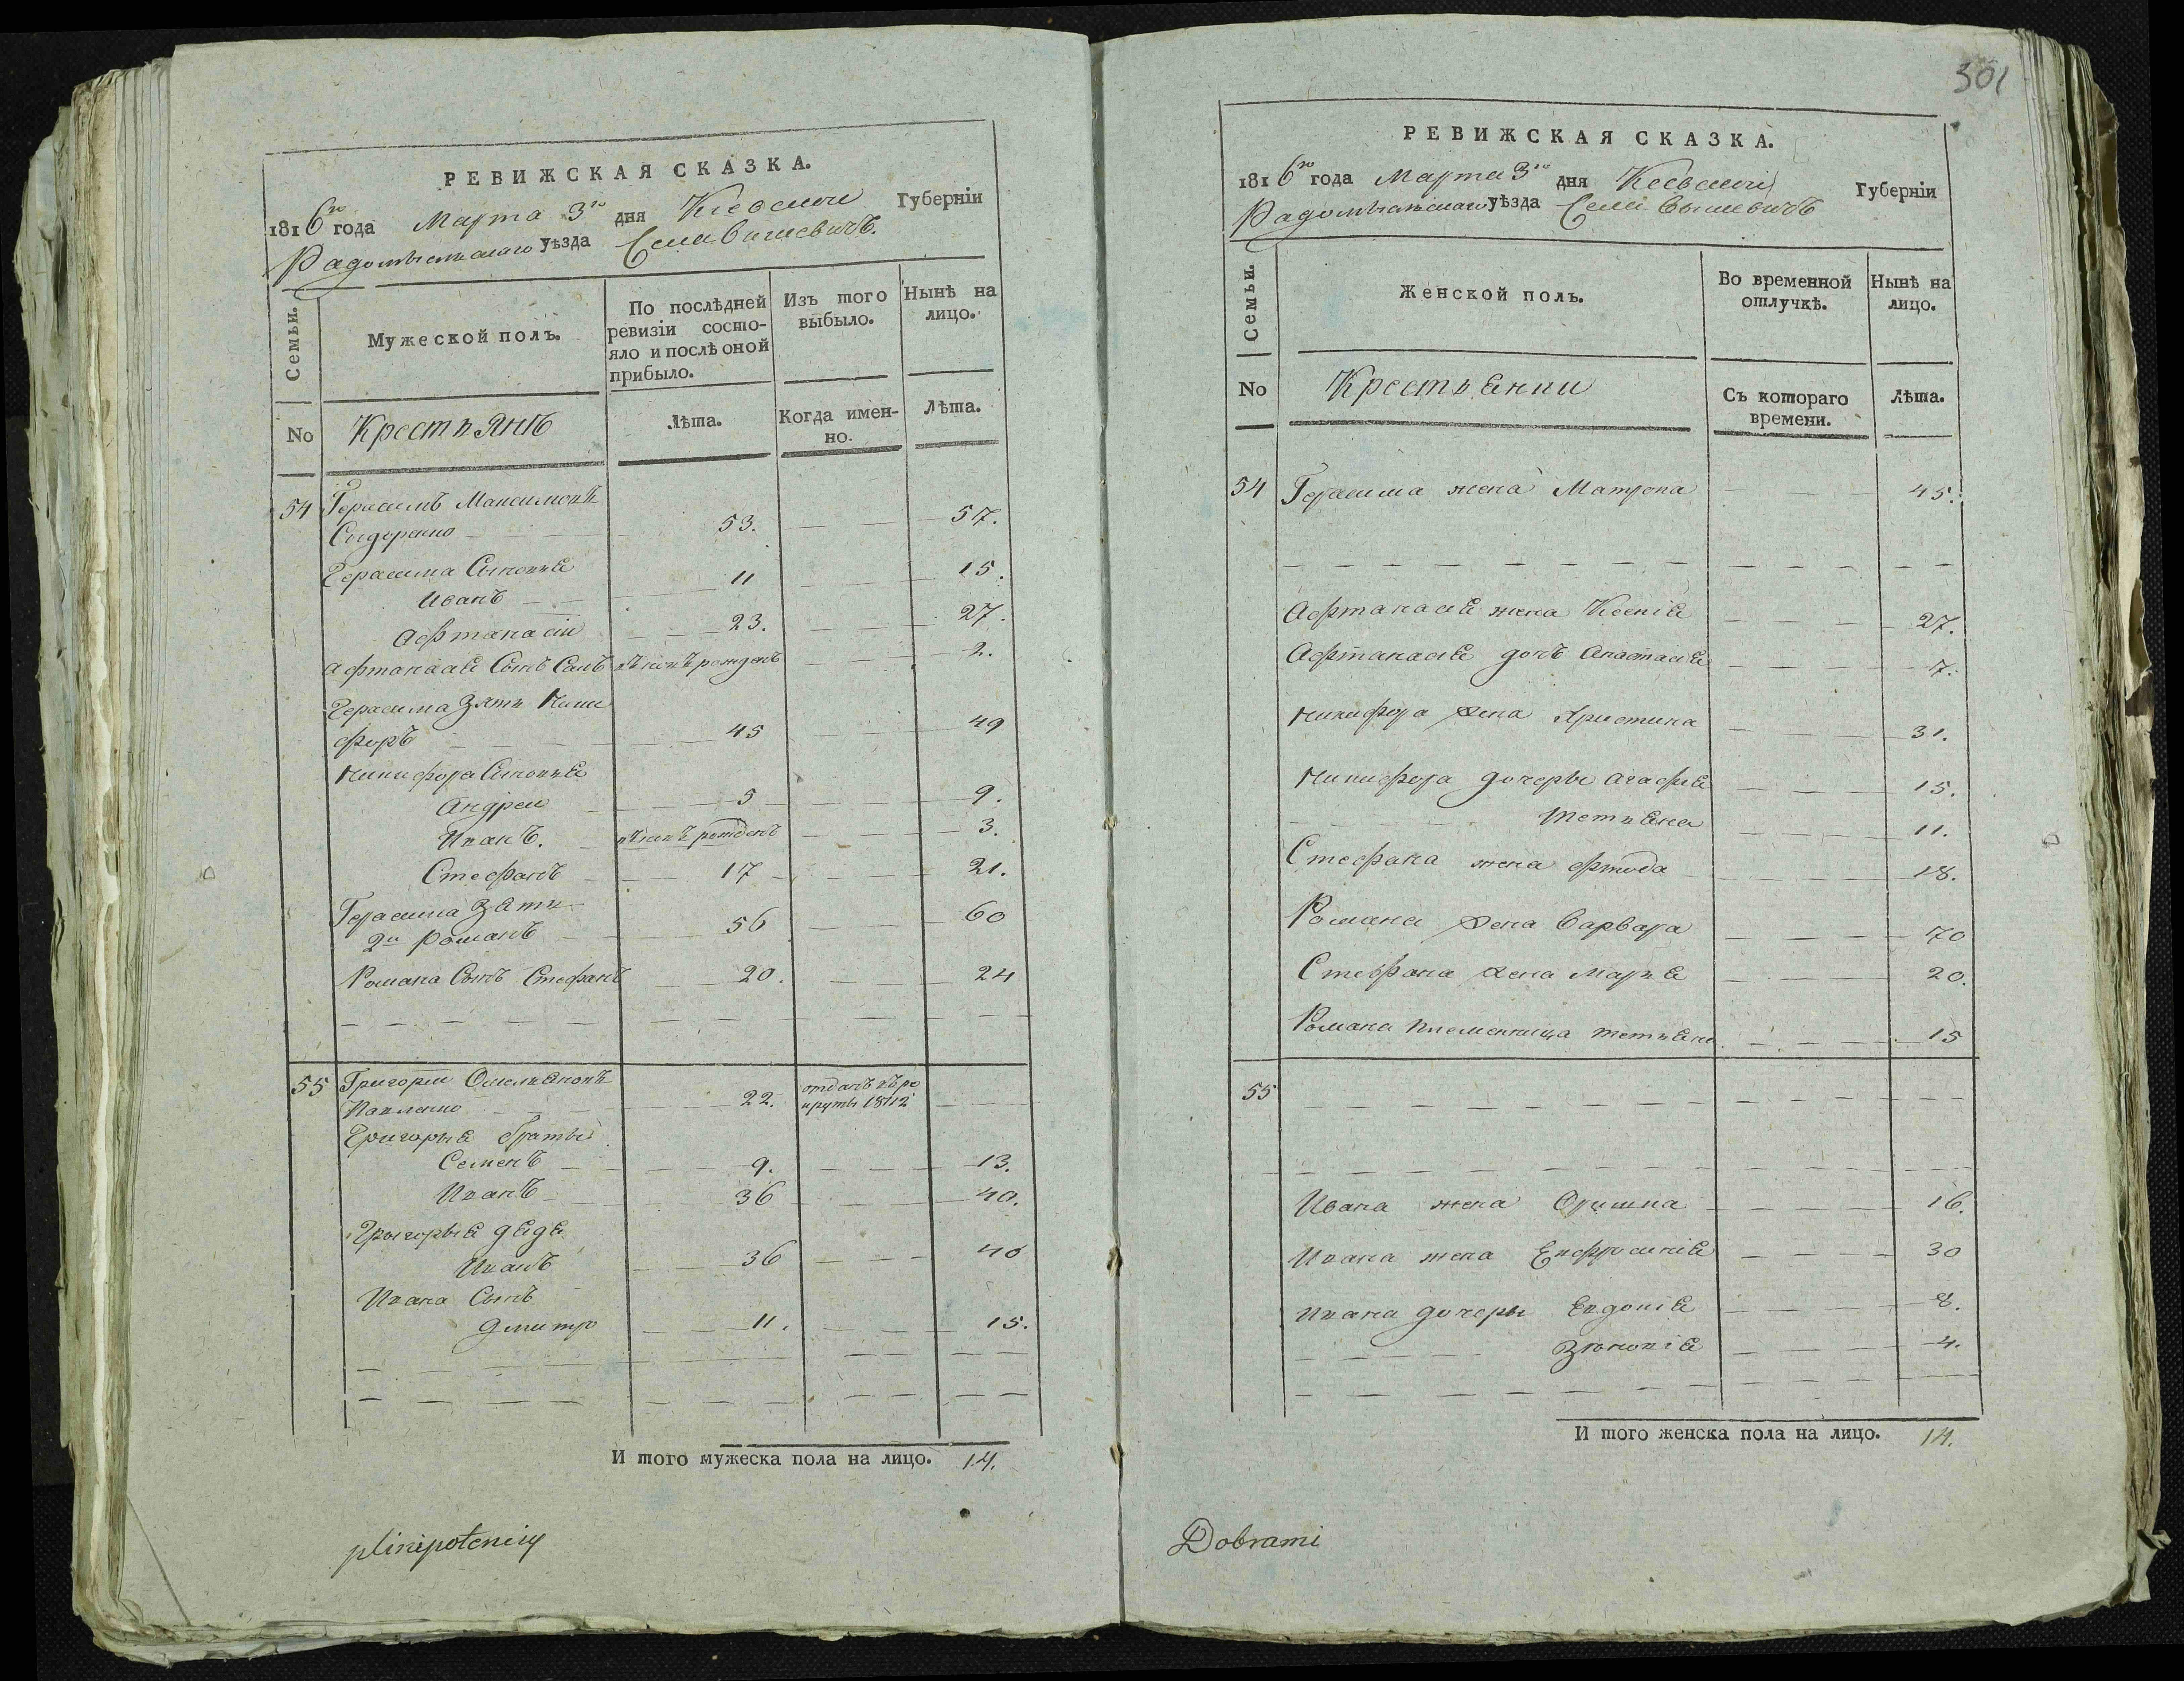 РЕВИЖСКАЯ СКАЗКА.
1816го года Марта 3го дня Киевской Губерніи
Радомысльскаго уѣзда Села Вышевичъ.
Семьи.
Мужеской полъ.
По послѣдней ревизіи состояло и послѣ оной прибыло.
Изъ того выбыло.
Нынѣ на лицо.
No
Крестьянъ
Лѣта.
Когда именно.
Лѣта.
54 Герасимъ Максимовъ
Сидоренко 53. 57.
Герасима Сыновья
Иванъ 11 15.
Афтанасій 23. 27.
Афтанасія Сынъ Савъ вновь рожденъ 2.
Герасима зять Ники
форъ 45 49
Никифора Сыновья
Андрей 5 9.
Иванъ. вновь рожденъ 3.
Стефанъ 17 21.
Герасима зять
2й Романъ 56 60
Романа Сынъ Стефанъ 20. 24
55 Григорій Омельяновъ отданъ въ ре
Павленко 22. круты 1812
Григорья братья
Семенъ 9. 13.
Иванъ 36 40.
Григорья дядя
Иванъ 36 40
Ивана Сынъ
Дмитро 11. 15.
И того мужеска пола на лицо. 14.
plinipotenciy
301
РЕВИЖСКАЯ СКАЗКА.
1816го года Марта 3го дня Киевской Губерніи
Радомысльскаго уѣзда Села Вышевичъ
Семьи.
Женской полъ.
Во временной отлучкѣ.
Нынѣ на лицо.
No
Крестьянки
Съ котораго времени.
Лѣта.
54 Герасима жена Матрона 45.
Афтанасія жена Ксенія 27.
Афтанасія дочь Анастасія 7.
Никифора жена Христина 31.
Никифора дочеры Агафія 15.
Тетьяна 11.
Стефана жена 18.
Романа жена Варвара 70
Стефана жена Марья 20.
Романа племенница Тетьяна 15
55
Ивана жена Оришка 16.
Ивана жена Евфросинія 30
Ивана дочеры Евдокія 8.
Зѣновія 4.
И того женска пола на лицо. 14.
Dobrami